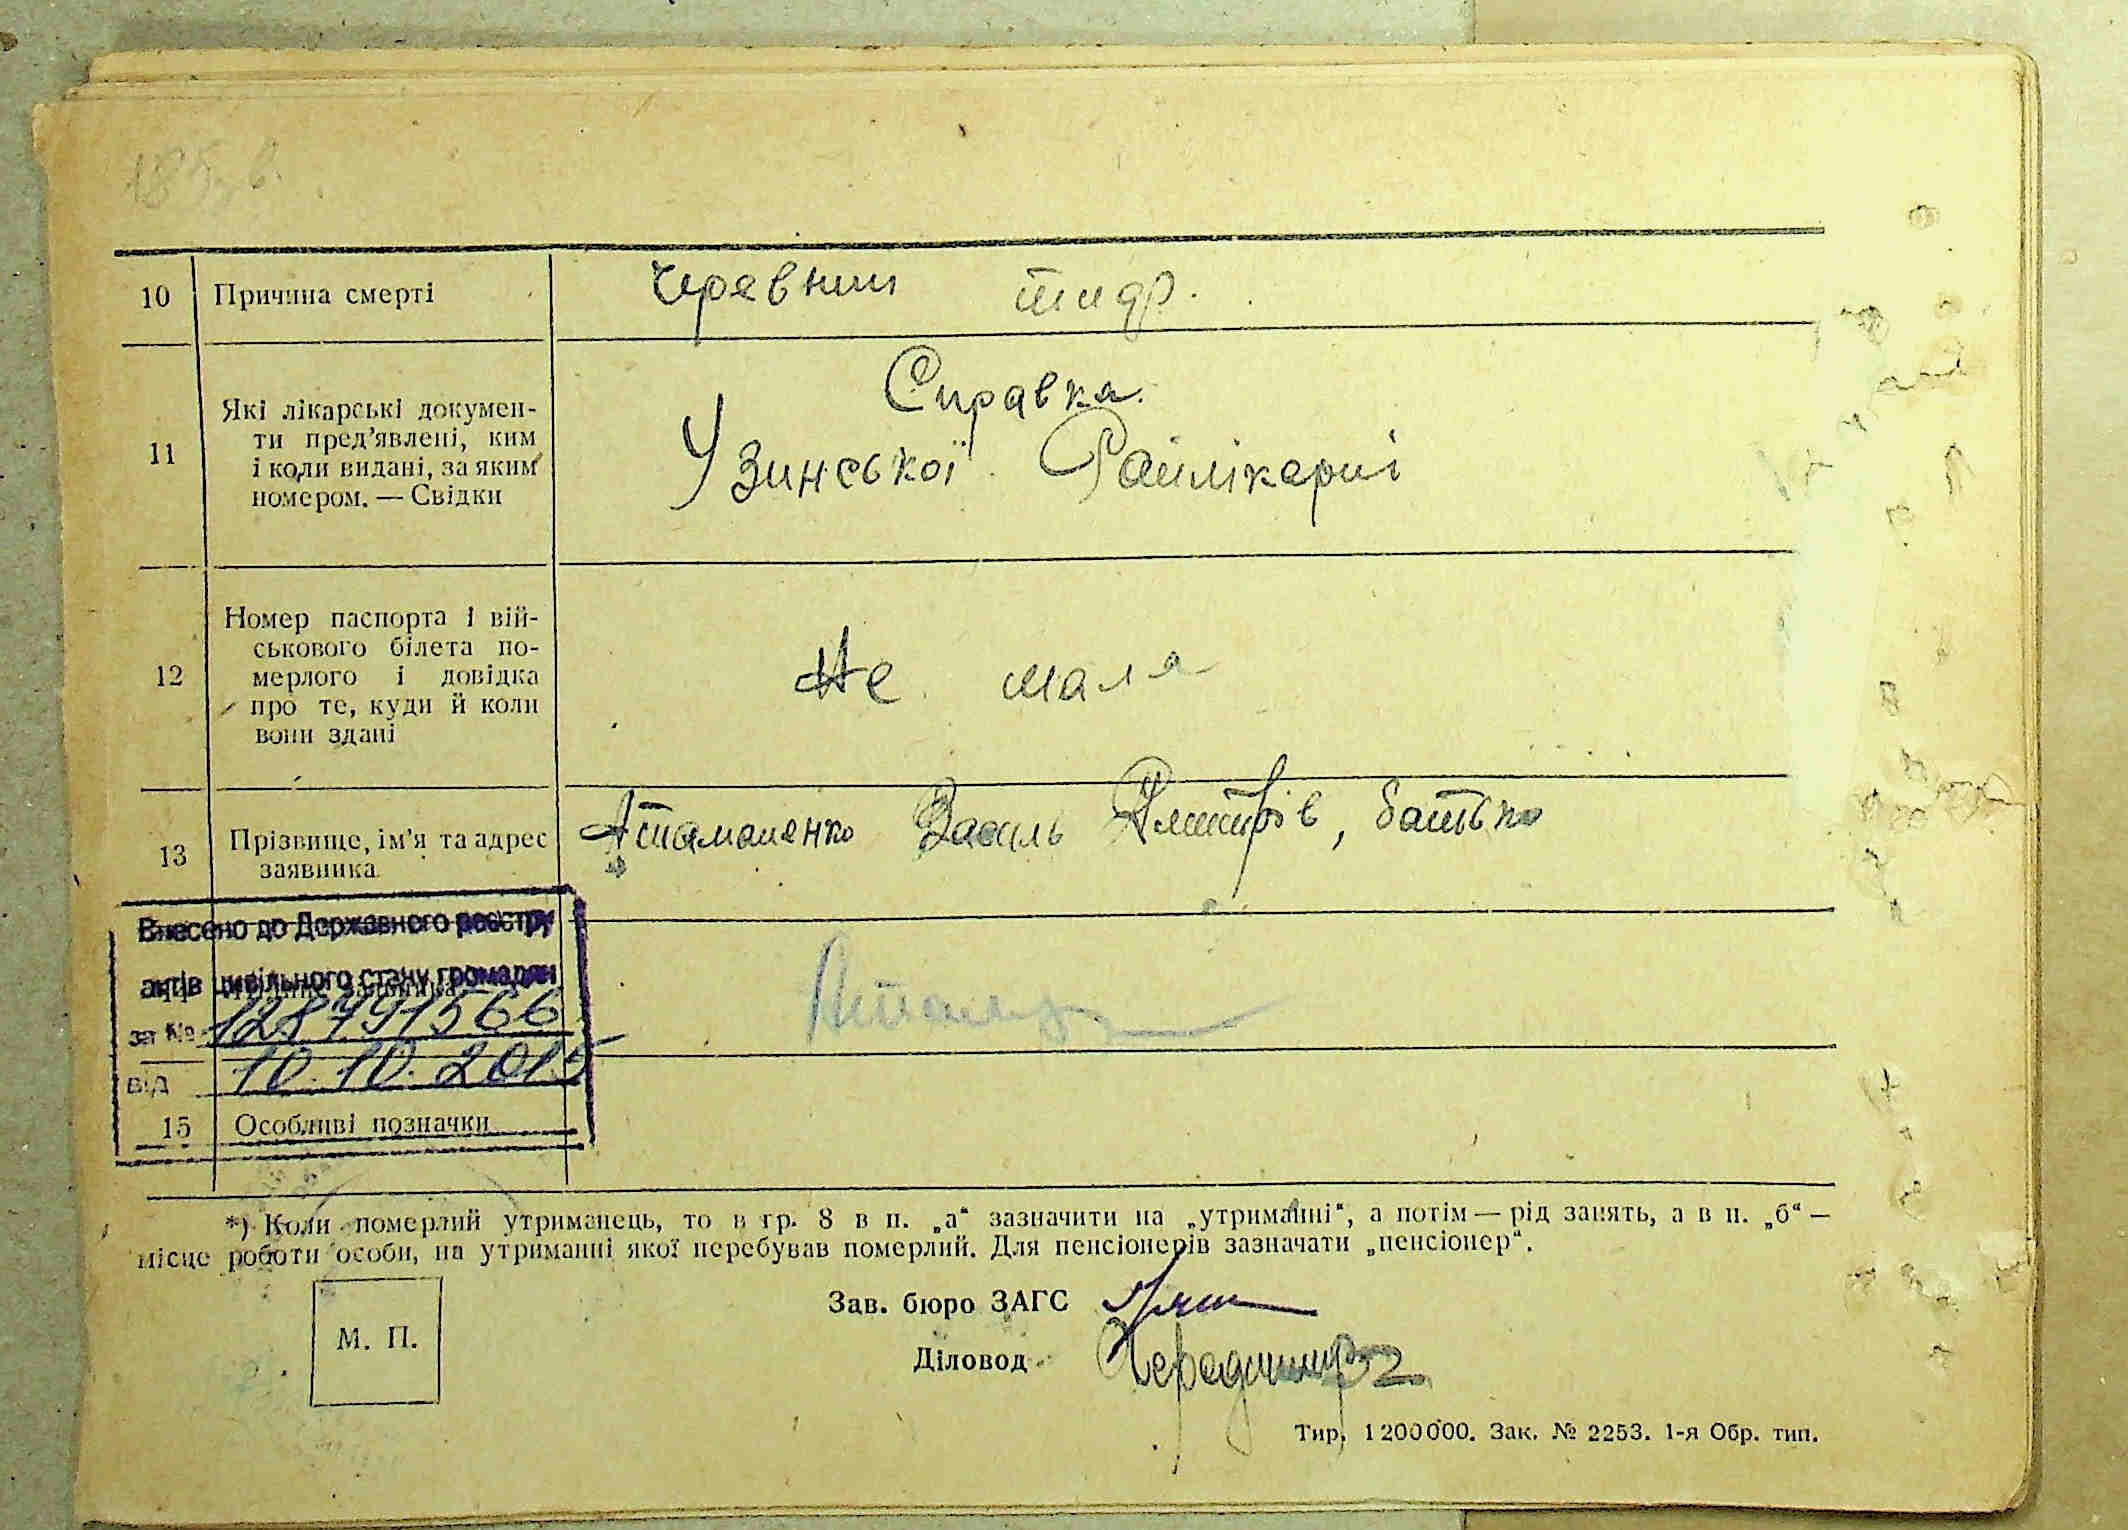 10 Причина смерті черевний тиф.
11 Які лікарські докумен-
ти пред'явлені, ким
і коли видані, за яким
номером. — Свідки
Справка
Узинської Райлікарні
12 Номер паспорта і вій-
ськового білета по-
мерлого і довідка
про те, куди й коли
вони здані
Не мала
13 Прізвище, ім'я та адрес
заявника
Атаманенко Василь Дмитрів, батько
Внесено до Державного реєстру
актів цивільного стану громадян
за № 128791566
від 10.10.2015
15 Особливі позначки
*) Коли померлий утриманець, то в гр. 8 в п. „а“ зазначити на „утриманні“, а потім — рід занять, а в п. „б“ —
місце роботи особи, на утриманні якої перебував померлий. Для пенсіонерів зазначати „пенсіонер“.
М. П.
Зав. бюро ЗАГС
Діловод
Тир. 1200000. Зак. № 2253. 1-я Обр. тип.